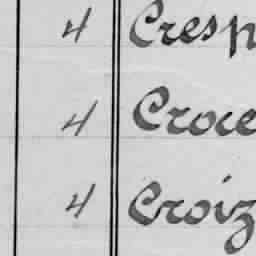 4 Cresp
4 Croce
4 Croiz